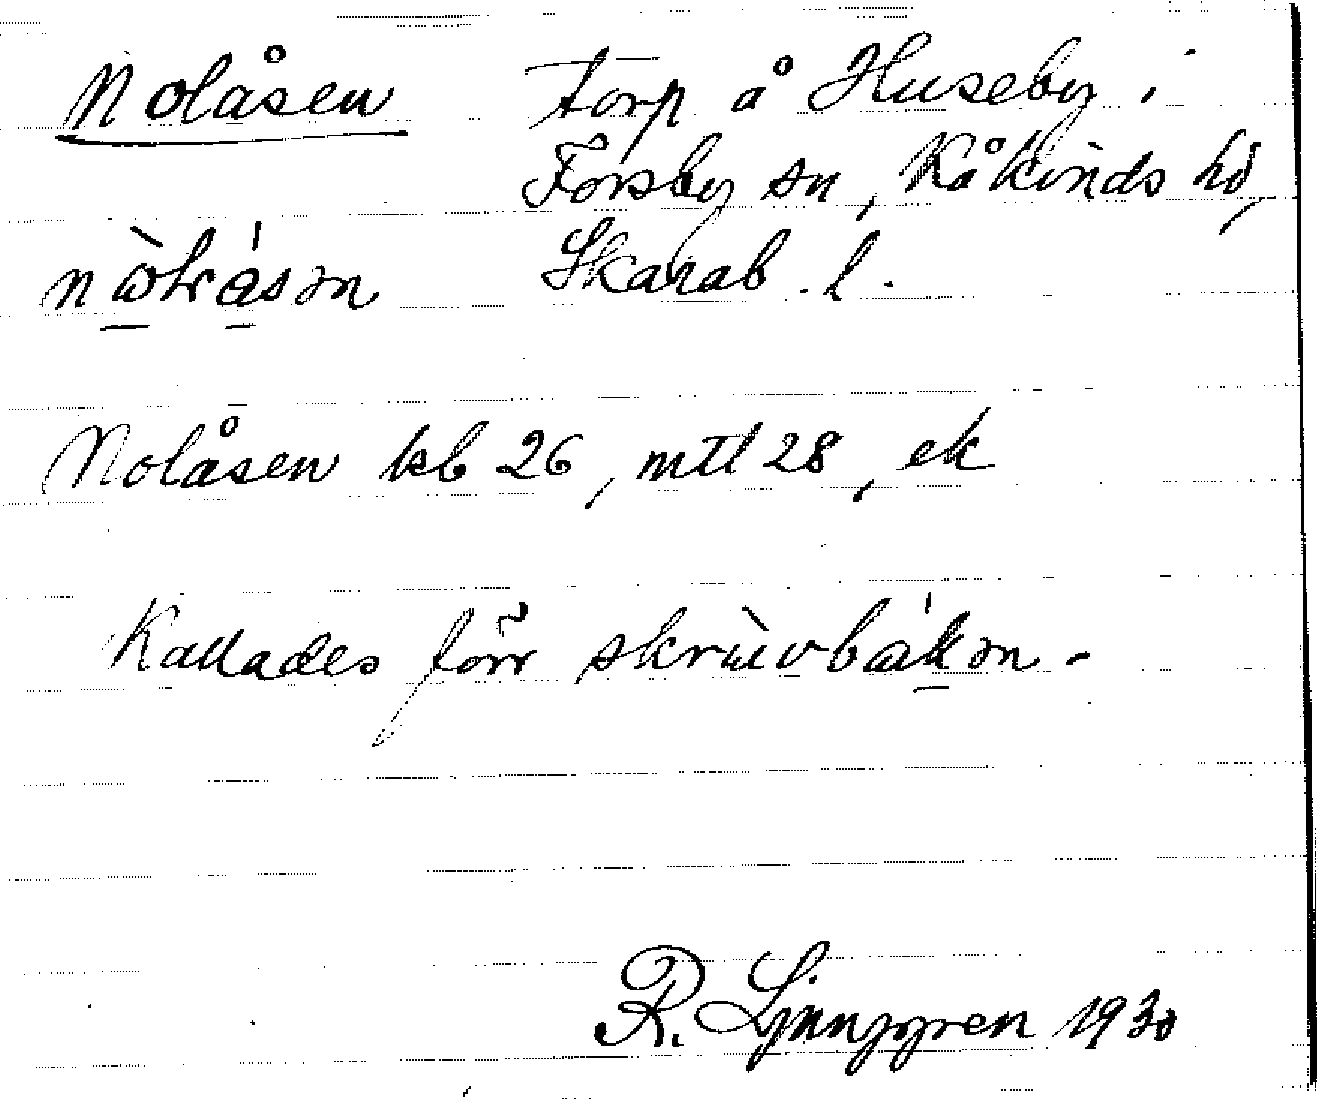 Nolåsen torp å Huseby i
Forsby sn, Kåkinds hd,
Skarab. l.
Nolåsen kb 26, mtl 28, ek
Kallades förr
R. Ljunggren 1930